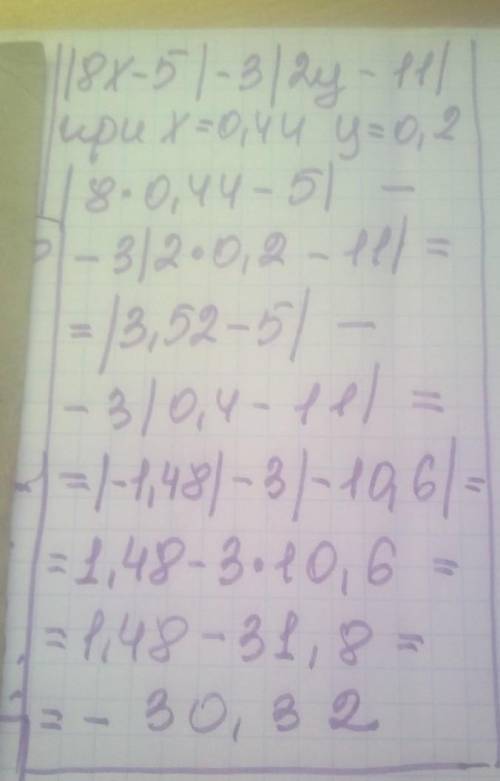 ||8x-5|-3|2y-11|
при x=0,44 y=0,2
|8·0,44-5| -
-3|2·0,2-11|=
=|3,52-5| -
-3|0,4-11| =
=|-1,48|-3|-10,6|=
=1,48-3·10,6 =
=1,48-31,8 =
=- 30,32